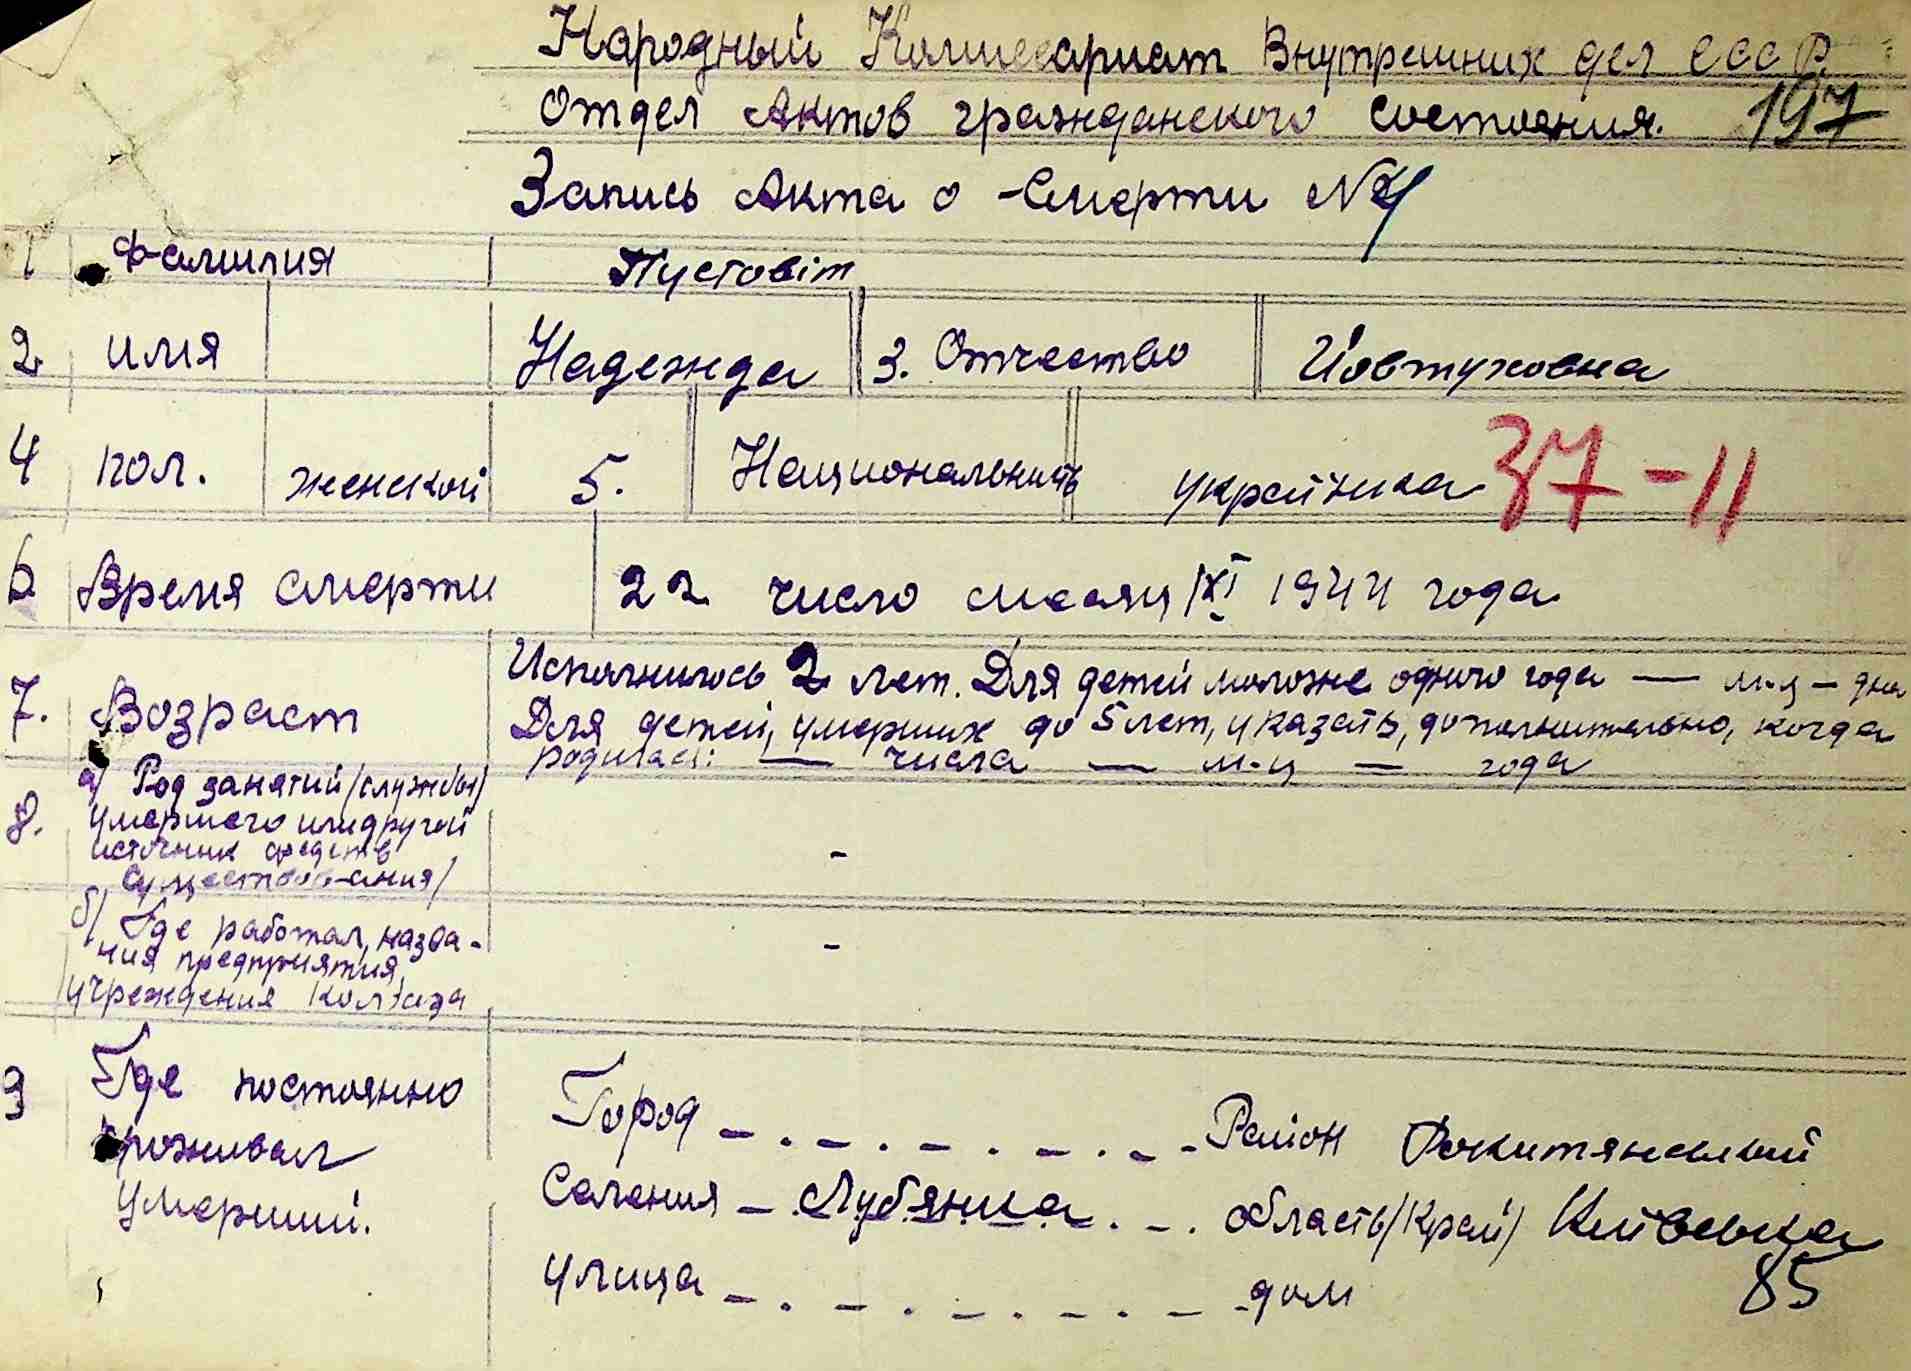 Народный Комиссариат Внутрених дел СССР.
Отдел Актов гражданского состояния. 197
Запись Акта о Смерти №
1 Фамилия Пустовіт
2. имя Надежда 3. Отчество Йовтуховна
4 пол. женской 5. Национальность украйнка 37-11
6 Время смерти 22 число месяц XI 1944 года
7. Возраст Исполнилось 2 лет. Для детей моложе одного года — м-ц – дна
Для детей, умерших до 5 лет, указать, дополнительно, когда
родилась: — числа — м-ц — года
8. а/ Род занятий /службы/
умершего или другой
источник средств
существования/ -
б/ Где работал, назва-
ния предприятия,
учреждения колхоза -
9 Где постоянно
проживал
умерший.
Город – . – . – . – . – Район Рокитянський
Селения – Лубянка . – . область/край/ Київська
улица – . – . – . – дом 85